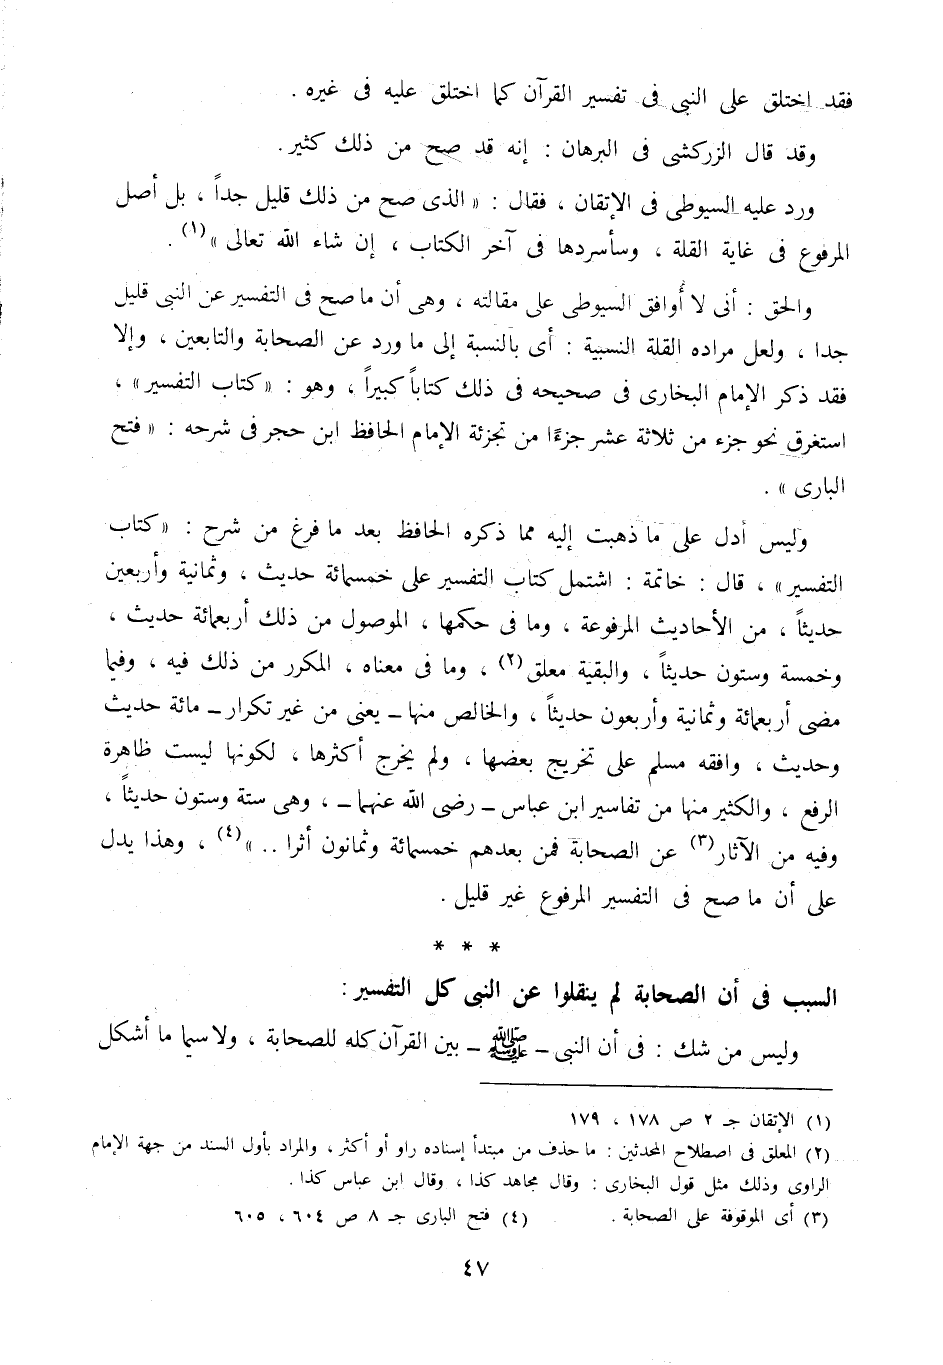 فقد اختلق على النبى فى تفسير القرآن كما اختلق عليه فى غيره .
وقد قال الزركشى فى البرهان : إنه قد صح من ذلك كثير .
ورد عليه السيوطى فى الإتقان ، فقال : « الذى صح من ذلك قليل جداً ، بل أصل
المرفوع فى غاية القلة ، وسأسردها فى آخر الكتاب ، إن شاء الله تعالى »(١) .
والحق : أنى لا أُوافق السيوطى على مقالته ، وهى أن ما صح فى التفسير عن النبى قليل
جدا ، ولعل مراده القلة النسبية : أى بالنسبة إلى ما ورد عن الصحابة والتابعين ، وإلا
فقد ذكر الإمام البخارى فى صحيحه فى ذلك كتاباً كبيراً ، وهو : « كتاب التفسير » ،
استغرق نحو جزء من ثلاثة عشر جزءًا من تجزئة الإمام الحافظ ابن حجر فى شرحه : « فتح
البارى » .
وليس أدل على ما ذهبت إليه مما ذكره الحافظ بعد ما فرغ من شرح : « كتاب
التفسير » ، قال : خاتمة : اشتمل كتاب التفسير على خمسمائة حديث ، وثمانية وأربعين
حديثاً ، من الأحاديث المرفوعة ، وما فى حكمها ، الموصول من ذلك أربعمائة حديث ،
وخمسة وستون حديثاً ، والبقية معلق(٢) ، وما فى معناه ، المكرر من ذلك فيه ، وفيما
مضى أربعمائة وثمانية وأربعون حديثاً ، والخالص منها ــ يعنى من غير تكرار ــ مائة حديث
وحديث ، وافقه مسلم على تخريج بعضها ، ولم يخرج أكثرها ، لكونها ليست ظاهرة
الرفع ، والكثير منها من تفاسير ابن عباس ــ رضى الله عنهما ــ ، وهى ستة وستون حديثاً ،
وفيه من الآثار(٣) عن الصحابة فمن بعدهم خمسمائة وثمانون أثرا .. »(٤) ، وهذا يدل
على أن ما صح فى التفسير المرفوع غير قليل .
* * *
السبب فى أن الصحابة لم ينقلوا عن النبى كل التفسير :
وليس من شك : فى أن النبى ــ ﷺ ــ بين القرآن كله للصحابة ، ولا سيما ما أشكل
(١) الإتقان جـ ٢ ص ١٧٨ ، ١٧٩
(٢) المعلق فى اصطلاح المحدثين : ما حذف من مبتدأ إسناده راو أو أكثر ، والمراد بأول السند من جهة الإمام
الراوى وذلك مثل قول البخارى : وقال مجاهد كذا ، وقال ابن عباس كذا .
(٣) أى الموقوفة على الصحابة . (٤) فتح البارى جـ ٨ ص ٦٠٤ ، ٦٠٥
٤٧